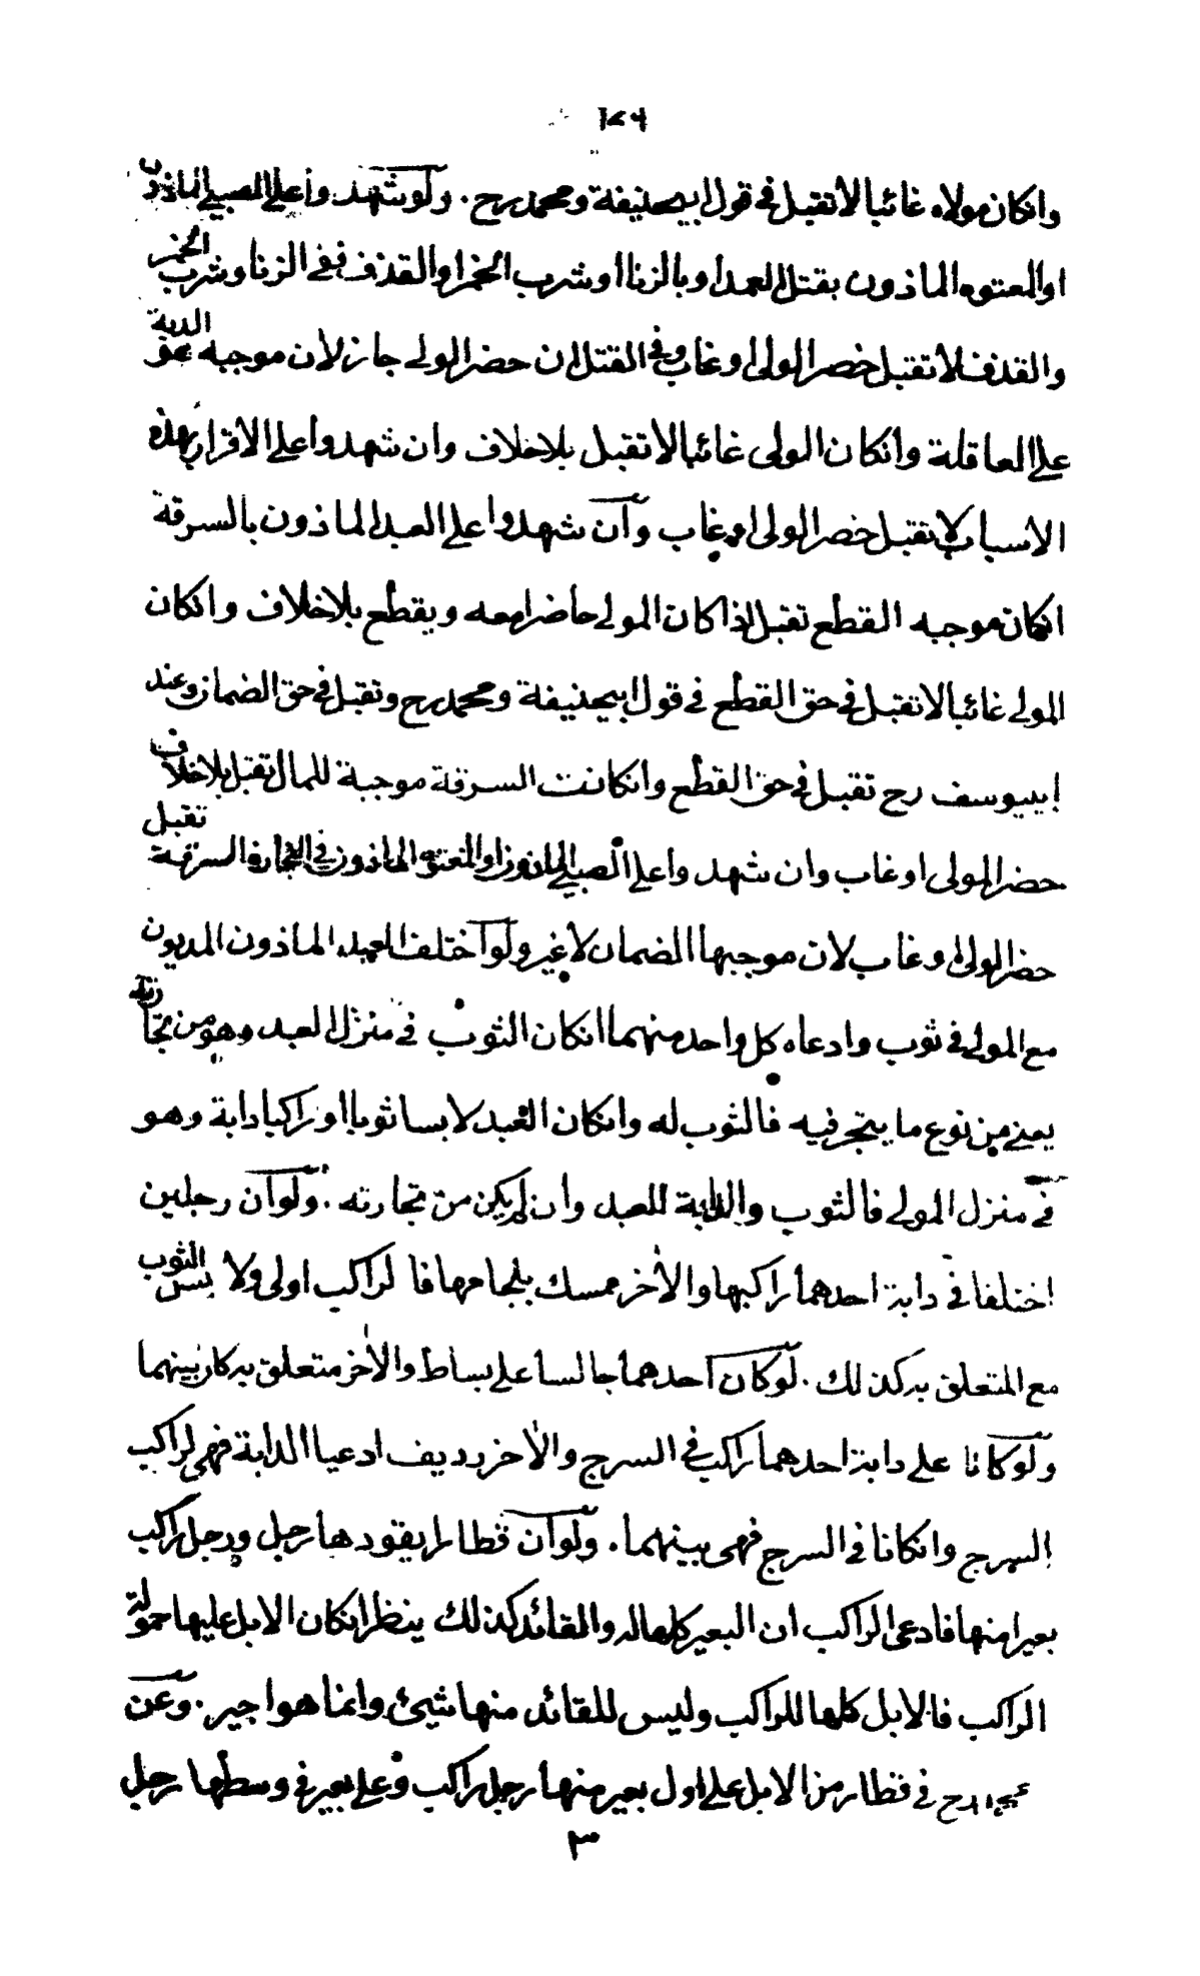 ١٤٩
وانكان مولاه غائبا لا تقبل في قول ابيحنيفة ومحمد رح . ولو شهدوا على الصبي الماذون
او المعتوه الماذون بقتل العمد او بالزنا او شرب الخمر او القذف ففي الزنا وشرب الخمر
والقذف لا تقبل حضر الولى او غاب وفي القتل ان حضر الولى جاز لان موجبه الدية
على العاقلة وانكان الولى غائبا لا تقبل بلا خلاف وان شهدوا على الاقرار بهذه
الاسباب لا تقبل حضر الولى او غاب وان شهدوا على العبد الماذون بالسرقة
انكان موجبه القطع تقبل اذا كان المولى حاضرا معه ويقطع بلا خلاف وانكان
المولى غائبا لا تقبل في حق القطع في قول ابيحنيفة ومحمد رح وتقبل في حق الضمان وعند
ابيوسف رح تقبل في حق القطع وانكانت السرقة موجبة للمال تقبل بلا خلاف
حضر المولى او غاب وان شهدوا على الصبي الماذون او المعتوه الماذون في التجارة السرقة تقبل
حضر الولى او غاب لان موجبها الضمان لا غير ولو اختلف العبد الماذون المديون
مع المولى في ثوب وادعاه كل واحد منهما انكان الثوب في منزل العبد وهو من تجارته
يعني من نوع ما يتجر فيه فالثوب له وانكان العبد لابسا ثوبا او راكبا دابة وهو
في منزل المولى فالثوب والدابة للعبد وان لم يكن من تجارته . ولو ان رجلين
اختلفا في دابة احدهما راكبها والآخر ممسك بلجامها فالراكب اولى ولابس الثوب
مع المتعلق به كذلك . لو كان احدهما جالسا على بساط والآخر متعلق به كان بينهما
ولو كانا على دابة احدهما راكب في السرج والآخر رديف ادعيا الدابة فهي لراكب
السرج وانكانا في السرج فهى بينهما . ولو ان قطارا يقودها رجل ورجل راكب
بعيرا منها فادعى الراكب ان البعير كلها له والقائد كذلك ينظر انكان الابل عليها حمولة
الراكب فالابل كلها للراكب وليس للقائد منها شيئ وانما هو اجير . وعن
محمد رح في قطار من الابل على اول بعير منها رجل راكب وعلى بعير في وسطها رجل
٣